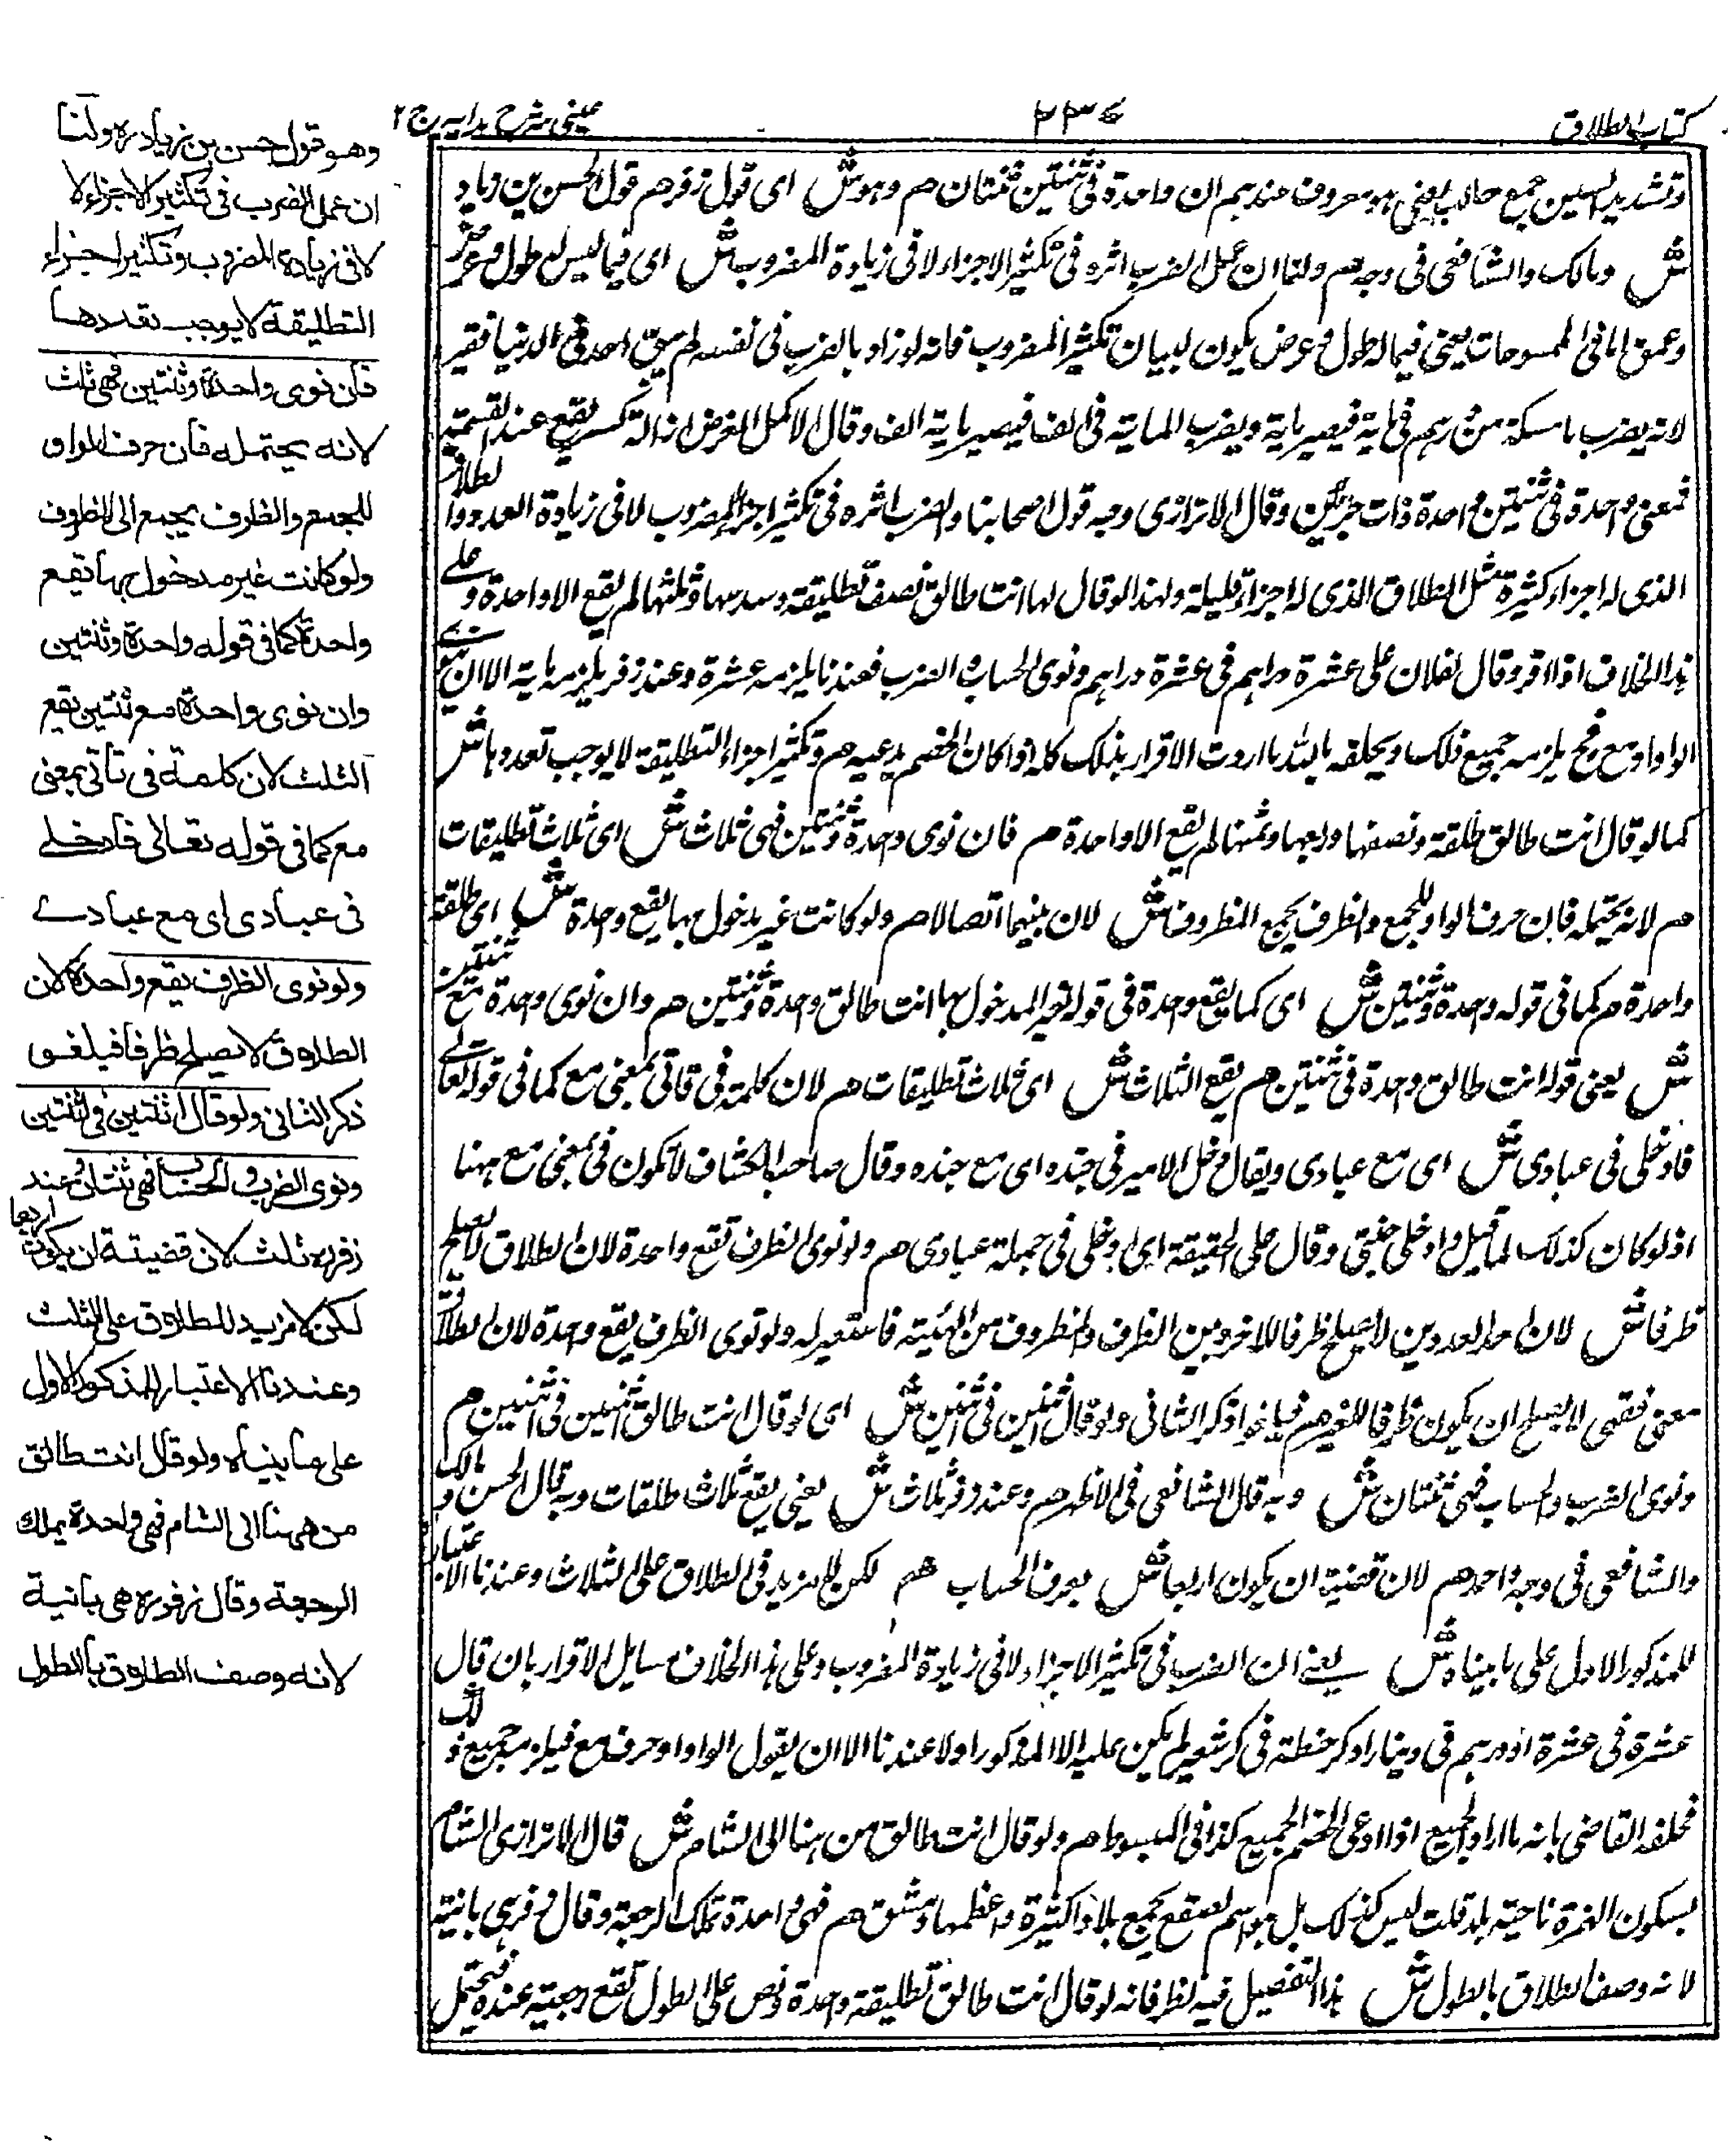 كتاب الطلاق
عينى شرح هدايه ج ٢
وتشديد السين جمع حاسب يعنى هو معروف عندهم ان واحدة فى ثنتين ثنتان هم وهو ش اى قول زفر هم قول الحسن بن زياد
ش ومالك والشافعى فى وجه هم ولنا ان عمل الضرب اثره فى تكثير الاجزاء لا فى زيادة المضروب ش اى فيما ليس له طول وعرض
وعمق اما فى الممسوحات يعنى فيما له طول وعرض يكون لبيان تكثير المضروب فانه لو زاد بالضرب فى نفسه لم يبق احد فى الدنيا فقير
لانه يضرب ما ملكه من درهم فى ماية فيصير ماية ويضرب الماية فى الف فيصير ماية الف وقال الاكمل الغرض ازالة كسر يقع عند القسمة
فمعنى واحدة فى ثنتين واحدة ذات جزئين وقال الاترازى وجه قول اصحابنا والضرب اثره فى تكثير اجزاء المضروب لا فى زيادة العدد والطلاق
الذى له اجزاء كثيرة مثل الطلاق الذى له اجزاء قليلة ولهذا لو قال لها انت طالق نصف تطليقة وسدسها وثلثها لم يقع الا واحدة وعلى
هذا الخلاف اذا اقر وقال لفلان على عشرة دراهم فى عشرة دراهم ونوى الحساب الضرب فعندنا يلزمه عشرة وعند زفر يلزمه ماية الا ان ينوى
الواو او مع فح يلزمه جميع ذلك ويحلفه بالله ما اردت الاقرار بذلك كله اذا كان الخصم يدعيه هم وتكثير اجزاء التطليقة لا يوجب تعددها ش
كما لو قال انت طالق طلقة ونصفها وربعها وثمنها لم يقع الا واحدة هم فان نوى واحدة وثنتين فهى ثلاث ش اى ثلاث تطليقات
هم لانه يحتمله فان حرف الواو للجمع والظرف يجمع المظروف ش لان بينهما اتصالا هم ولو كانت غير مدخول بها يقع واحدة ش اى طلقة
واحدة هم كما فى قوله واحدة وثنتين ش اى كما يقع واحدة فى قوله لغير المدخول بها انت طالق واحدة وثنتين هم وان نوى واحدة مع ثنتين
ش يعنى قوله انت طالق واحدة فى ثنتين هم يقع الثلاث ش اى ثلاث تطليقات هم لان كلمة فى تاتى بمعنى مع كما فى قوله تعالى
فادخلى فى عبادى ش اى مع عبادى ويقال دخل الامير فى جنده اى مع جنده وقال صاحب الكشاف لا تكون فى بمعنى مع ههنا
اذ لو كان كذلك لما قيل وادخلى جنتى وقال على الحقيقة اى ادخلى فى جملة عبادى هم ولو نوى الظرف تقع واحدة لان الطلاق لا يصلح
ظرفا ش لان احد العددين لا يصلح ظرفا للاخر وبين الظرف والمظروف من الهيئة فاستعير له ولو نوى الظرف يقع واحدة لان الطلاق
معنى فقهى لا يصلح ان يكون ظرفا للغير هم فيلغو ذكر الثانى ولو قال اثنين فى اثنين ش اى لو قال انت طالق اثنين فى اثنين هم
ونوى الضرب والحساب فهى ثنتان ش وبه قال الشافعى فى الاظهر هم وعند زفر ثلاث ش يعنى يقع ثلاث طلقات وبه قال الحسن ومالك
والشافعى فى وجه واحد هم لان قضيته ان يكون اربعا ش بعرف الحساب هم لكن لا مزيد فى الطلاق على الثلاث وعندنا الاعتبار
للمذكور الاول على ما بيناه ش يعنى ان الضرب فى تكثير الاجزاء لا فى زيادة المضروب وعلى هذا الخلاف مسايل الاقرار بان قال
عشرة فى عشرة او درهم فى دينار او كر حنطة فى كر شعير لم يكن عليه الا المذكور اولا عندنا الا ان يقول الواو او حرف مع فيلزمه جميع ذلك
فحلفه القاضى بانه ما اراد الجميع اذا ادعى الخصم الجميع كذا فى المبسوط هم ولو قال انت طالق من هنا الى الشام ش قال الاترازى الشام
بسكون الهمزة ناحية بلد قلت ليس كذلك بل هو اسم لصقع يجمع بلادا كثيرة واعظمها دمشق هم فهى واحدة تملك الرجعة وقال زفر هى باينة
لانه وصف الطلاق بالطول ش هذا التفصيل فيه نظر فانه لو قال انت طالق تطليقة واحدة ونص على الطول تقع رجعية عنده فيحتمل
وهو قول حسن بن زياد ره ولنا
ان عمل الضرب فى تكثير الاجزاء لا
لا فى زيادة المضروب وتكثير اجزاء
التطليقة لا يوجب تعددها
فان نوى واحدة وثنتين فهى ثلث
لانه يحتمله فان حرف الواو
للجمع والظرف يجمع الى المظروف
ولو كانت غير مدخول بها تقع
واحدة كما فى قوله واحدة وثنتين
وان نوى واحدة مع ثنتين يقع
الثلث لان كلمة فى تاتى بمعنى
مع كما فى قوله تعالى فادخلى
فى عبادى اى مع عبادى
ولو نوى الظرف يقع واحدة لان
الطلاق لا يصلح ظرفا فيلغو
ذكر الثانى ولو قال اثنتين فى اثنتين
ونوى الضرب والحساب فهى ثنتان وعند
زفر ره ثلث لان قضيته ان يكون اربعا
لكن لا مزيد للطلاق على الثلث
وعندنا الاعتبار المذكور الاول
على ما بيناه ولو قال انت طالق
من ههنا الى الشام فهى واحدة يملك
الرجعة وقال زفر ره هى بائنة
لانه وصف الطلاق بالطول